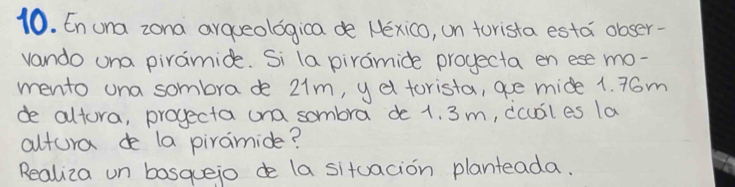 10. En una zona arqueológica de México, un turista está obser-
vando una pirámide. Si la pirámide proyecta en ese mo-
mento una sombra de 21m, y el turista, que mide 1.76m
de altura, proyecta una sombra de 1.3m, ¿cuál es la
altura de la pirámide?
Realiza un bosquejo de la situación planteada.